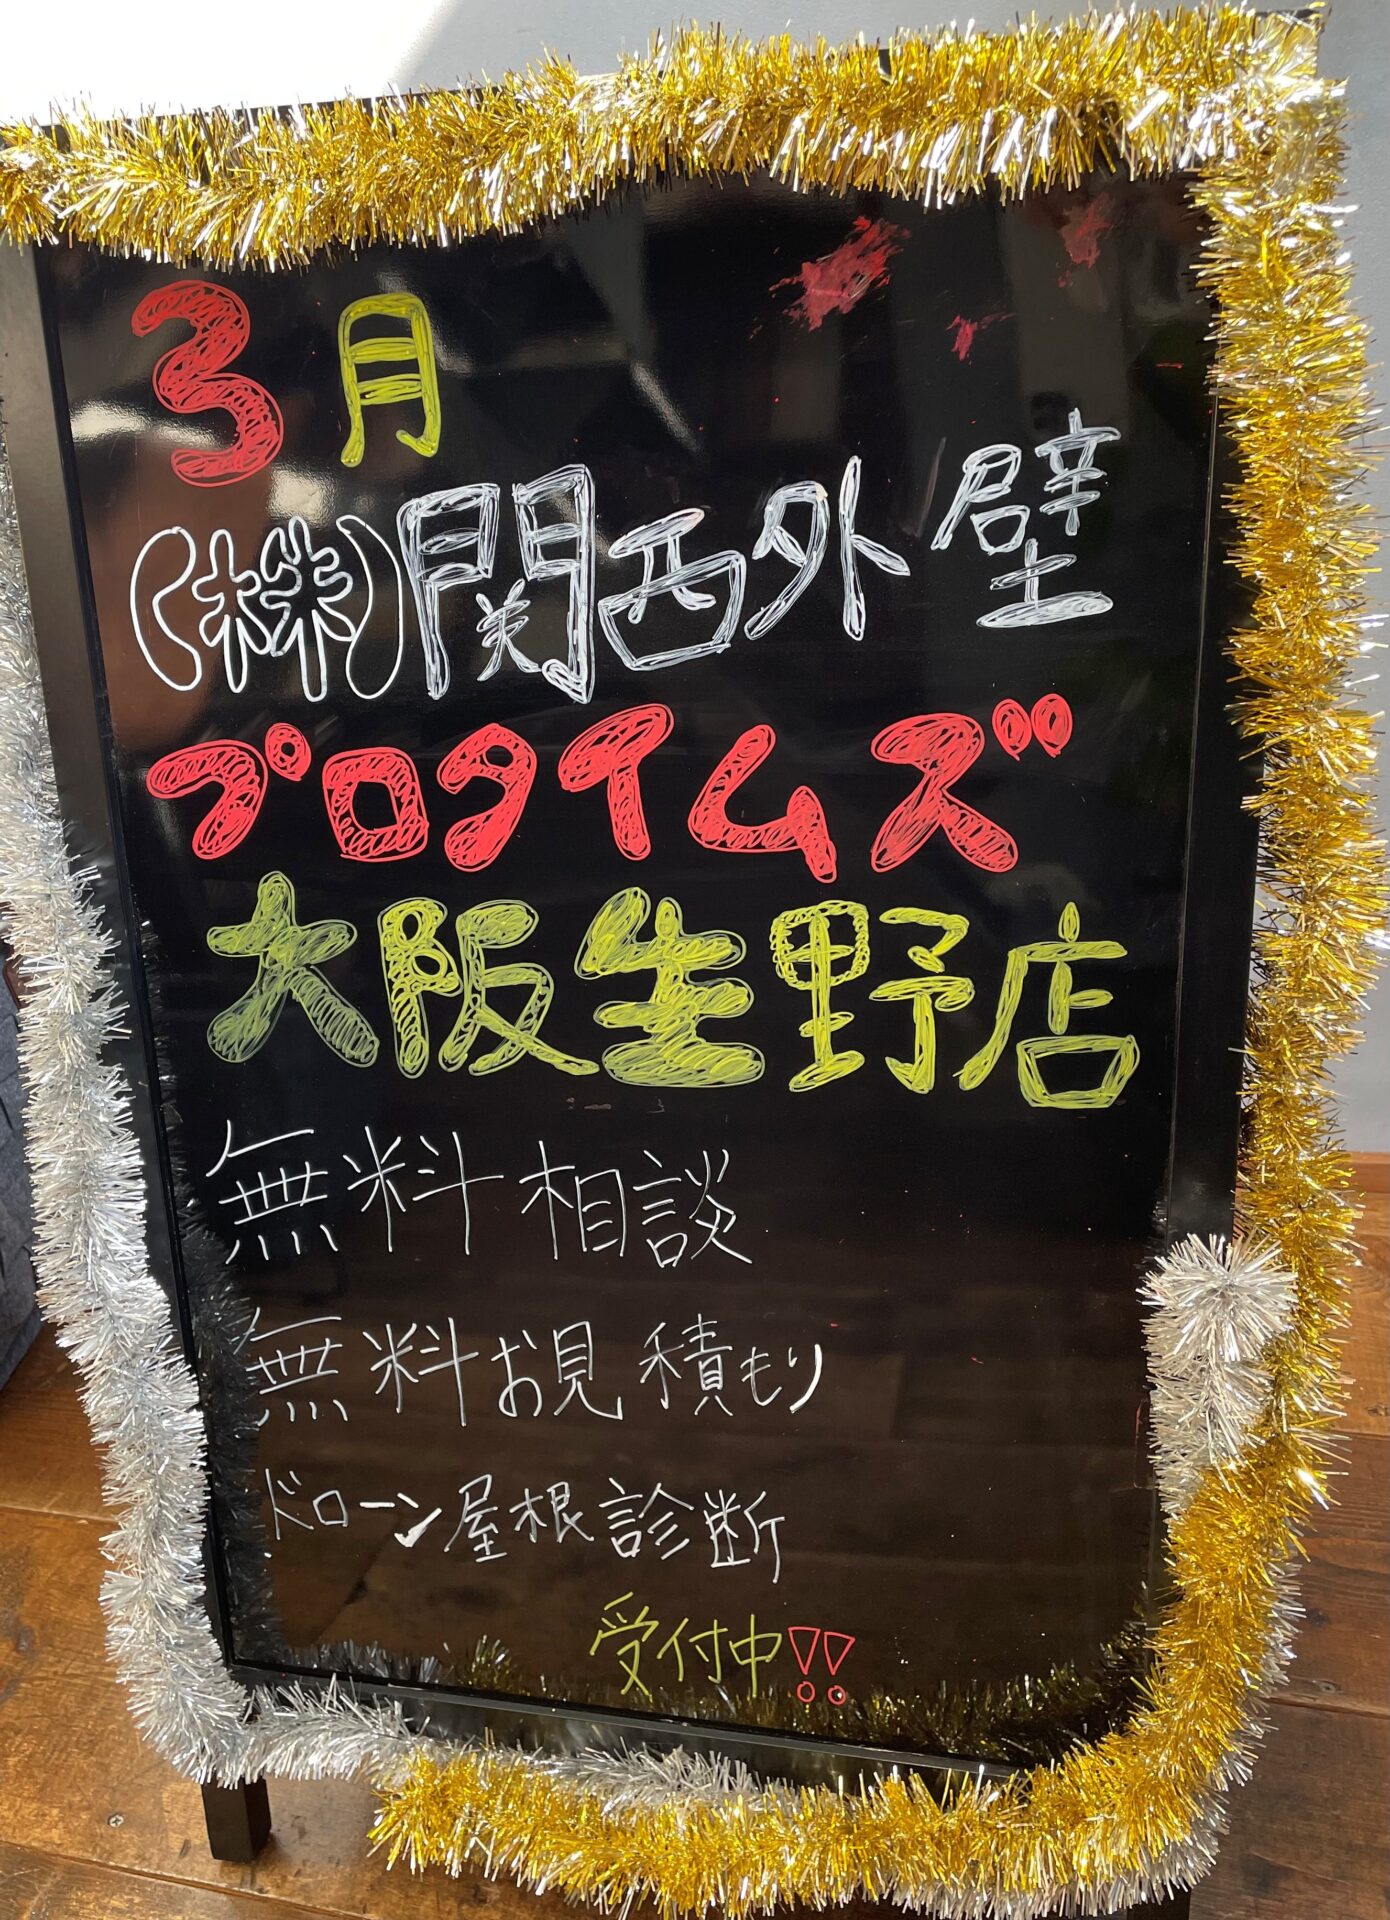 3月
(株)関西外壁
プロタイムズ
大阪生野店
無料相談
無料お見積もり
ドローン屋根診断
受付中!!